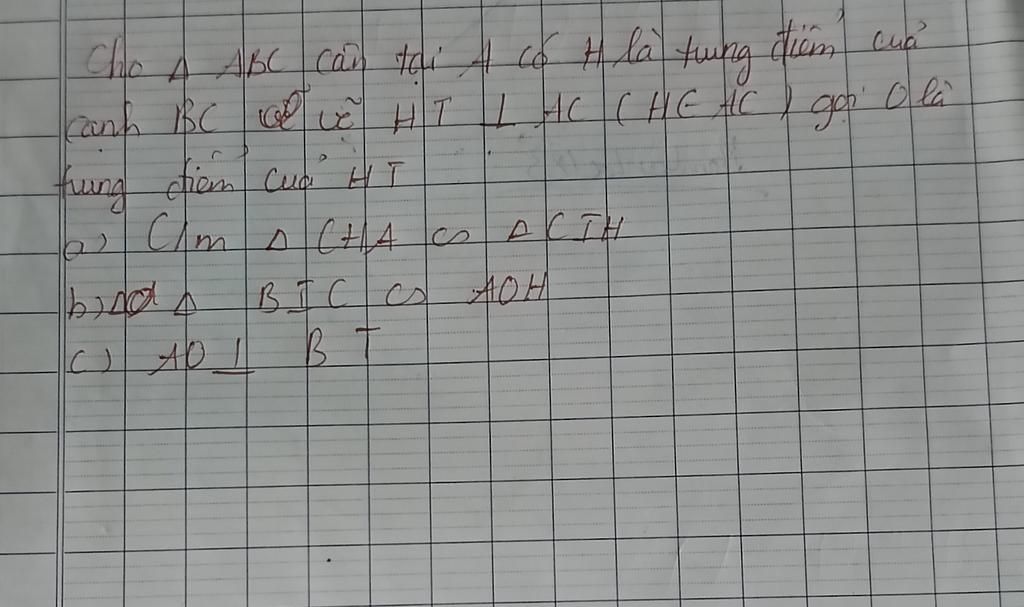 Cho Δ ABC cân tại A có H là trung điểm của
cạnh BC vẽ HI ⊥ AC (H ∈ AC) gọi O là
trung điểm của HI
a) C/m Δ CHA ∽ Δ CIH
b) Δ BIC ∽ AOH
c) AO ⊥ BI